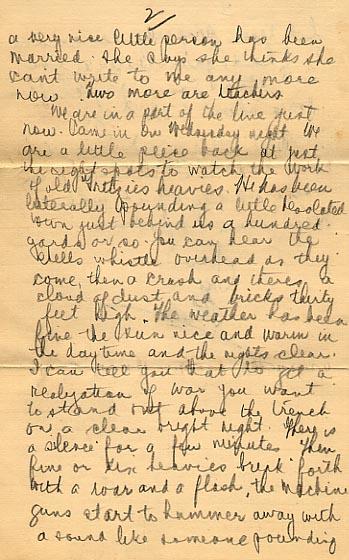 2
a very nice little person has been
married. She says she thinks she
cant write to me any more
now. Two more are teachers.
We are in a part of the line just
now. Came in on Wednesday night. We
are a little peice back at just
the right spots to watch the work
of old Fritzies heavies. He has been
laterally pounding a little desolated
town just behind us a hundred
yards or so. You can hear the
shells whistle overhead as they
come, then a crash and theres a
cloud of dust and bricks thirty
feet high. The weather has been
fine the sun nice and warm in
the daytime and the nights clear.
I can tell you that to get a
realization of war you want
to stand out above the trench
on a clear bright night. There is
a silence for a few minutes. Then
five or six heavies break forth
with a roar and a flash, the machine
guns start to hammer away with
a sound like someone pounding